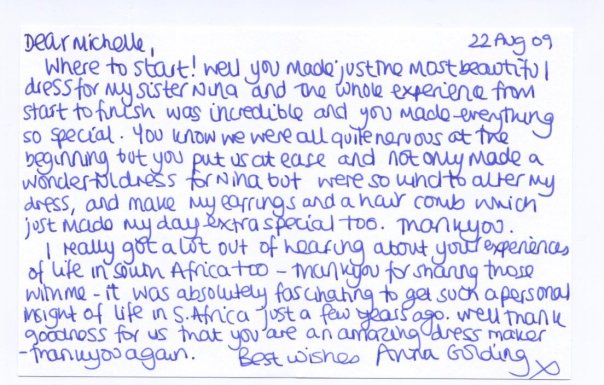 Dear Michelle,
22 Aug 09
Where to start! Well you made just the most beautiful
dress for my sister Nina and the whole experience from
start to finish was incredible and you made everything
so special. You know we were all quite nervous at the
beginning but you put us at ease and not only made a
wonderful dress for Nina but were so kind to alter my
dress, and make my earrings and a hair comb which
just made my day extra special too. Thankyou.
I really got a lot out of hearing about your experiences
of life in South Africa too - thankyou for sharing those
with me - it was absolutely fascinating to get such a personal
insight of life in S. Africa just a few years ago. Well thank
goodness for us that you are an amazing dress maker
- thankyou again. Best wishes Anna Golding x